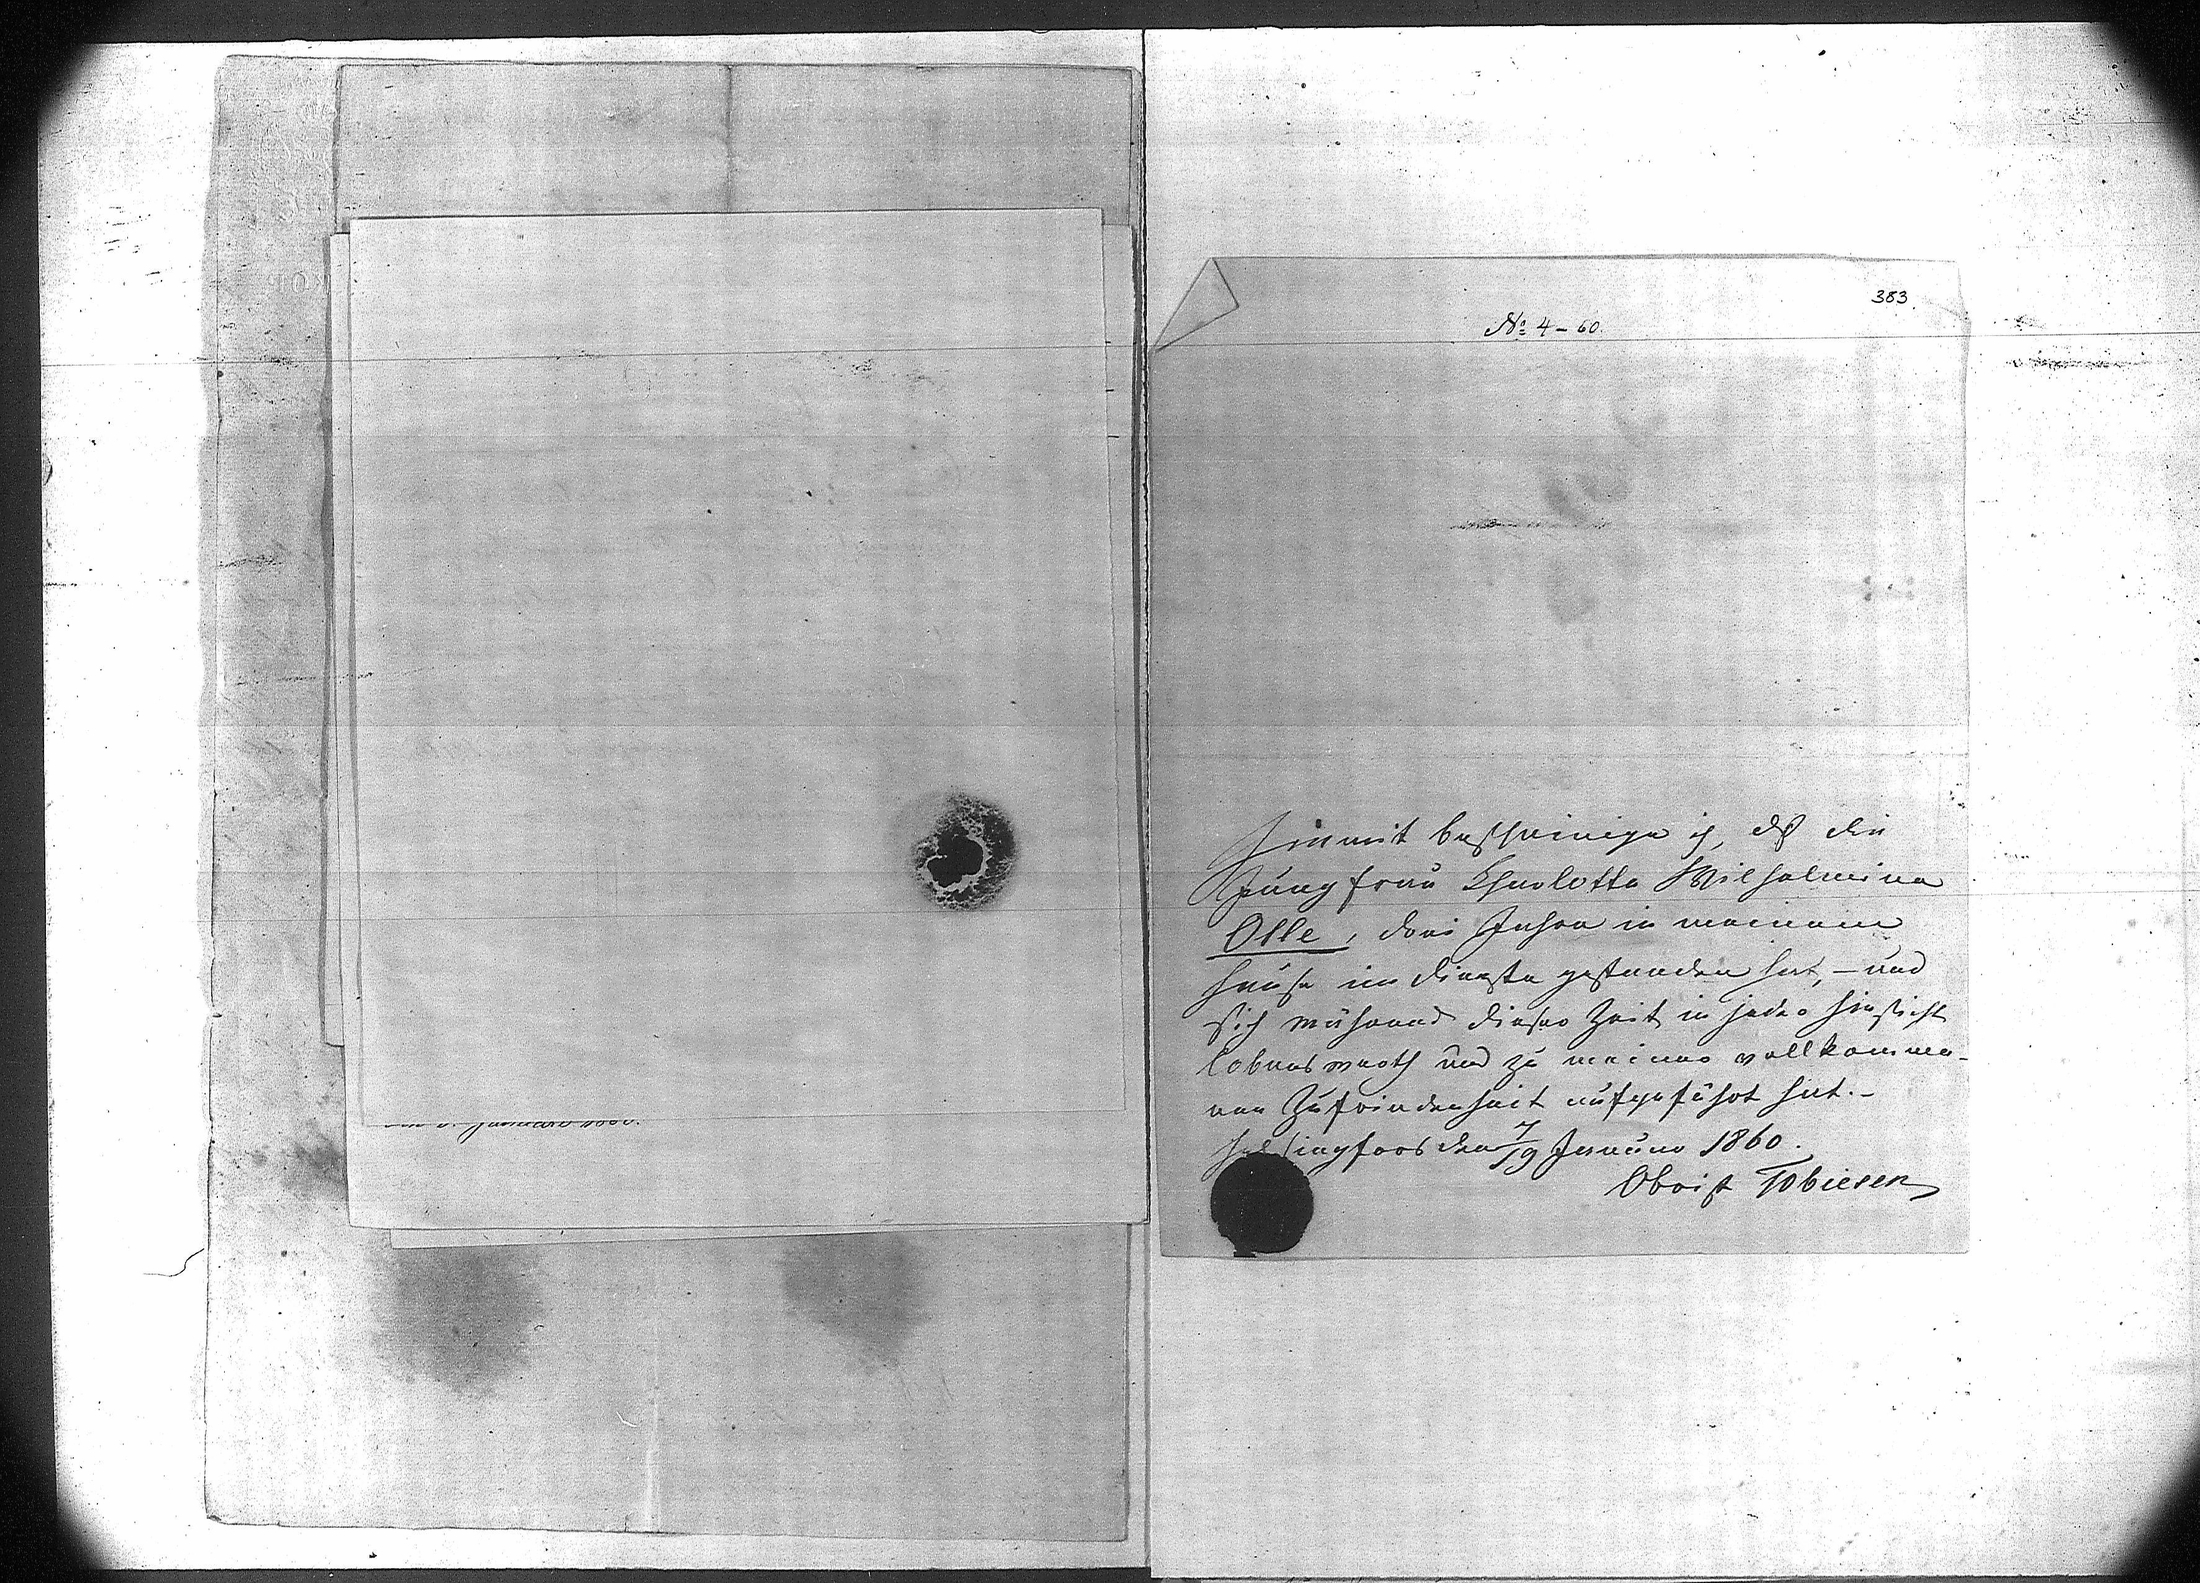 383
№ 4-60.
Hiermit bescheinige ich, daß die
Jungfrau Charlotta Wilhelmina
Olle, drei Jahre in meinem
Hause im Dienste gestanden hat, – und
sich während dieser Zeit in jeder Hinsicht
lobenswerth und zu meiner vollkomme-
nen Zufriedenheit aufgeführt hat. –
Helsingfors den 7/19 Januar 1860.
Obrist Tobiesen